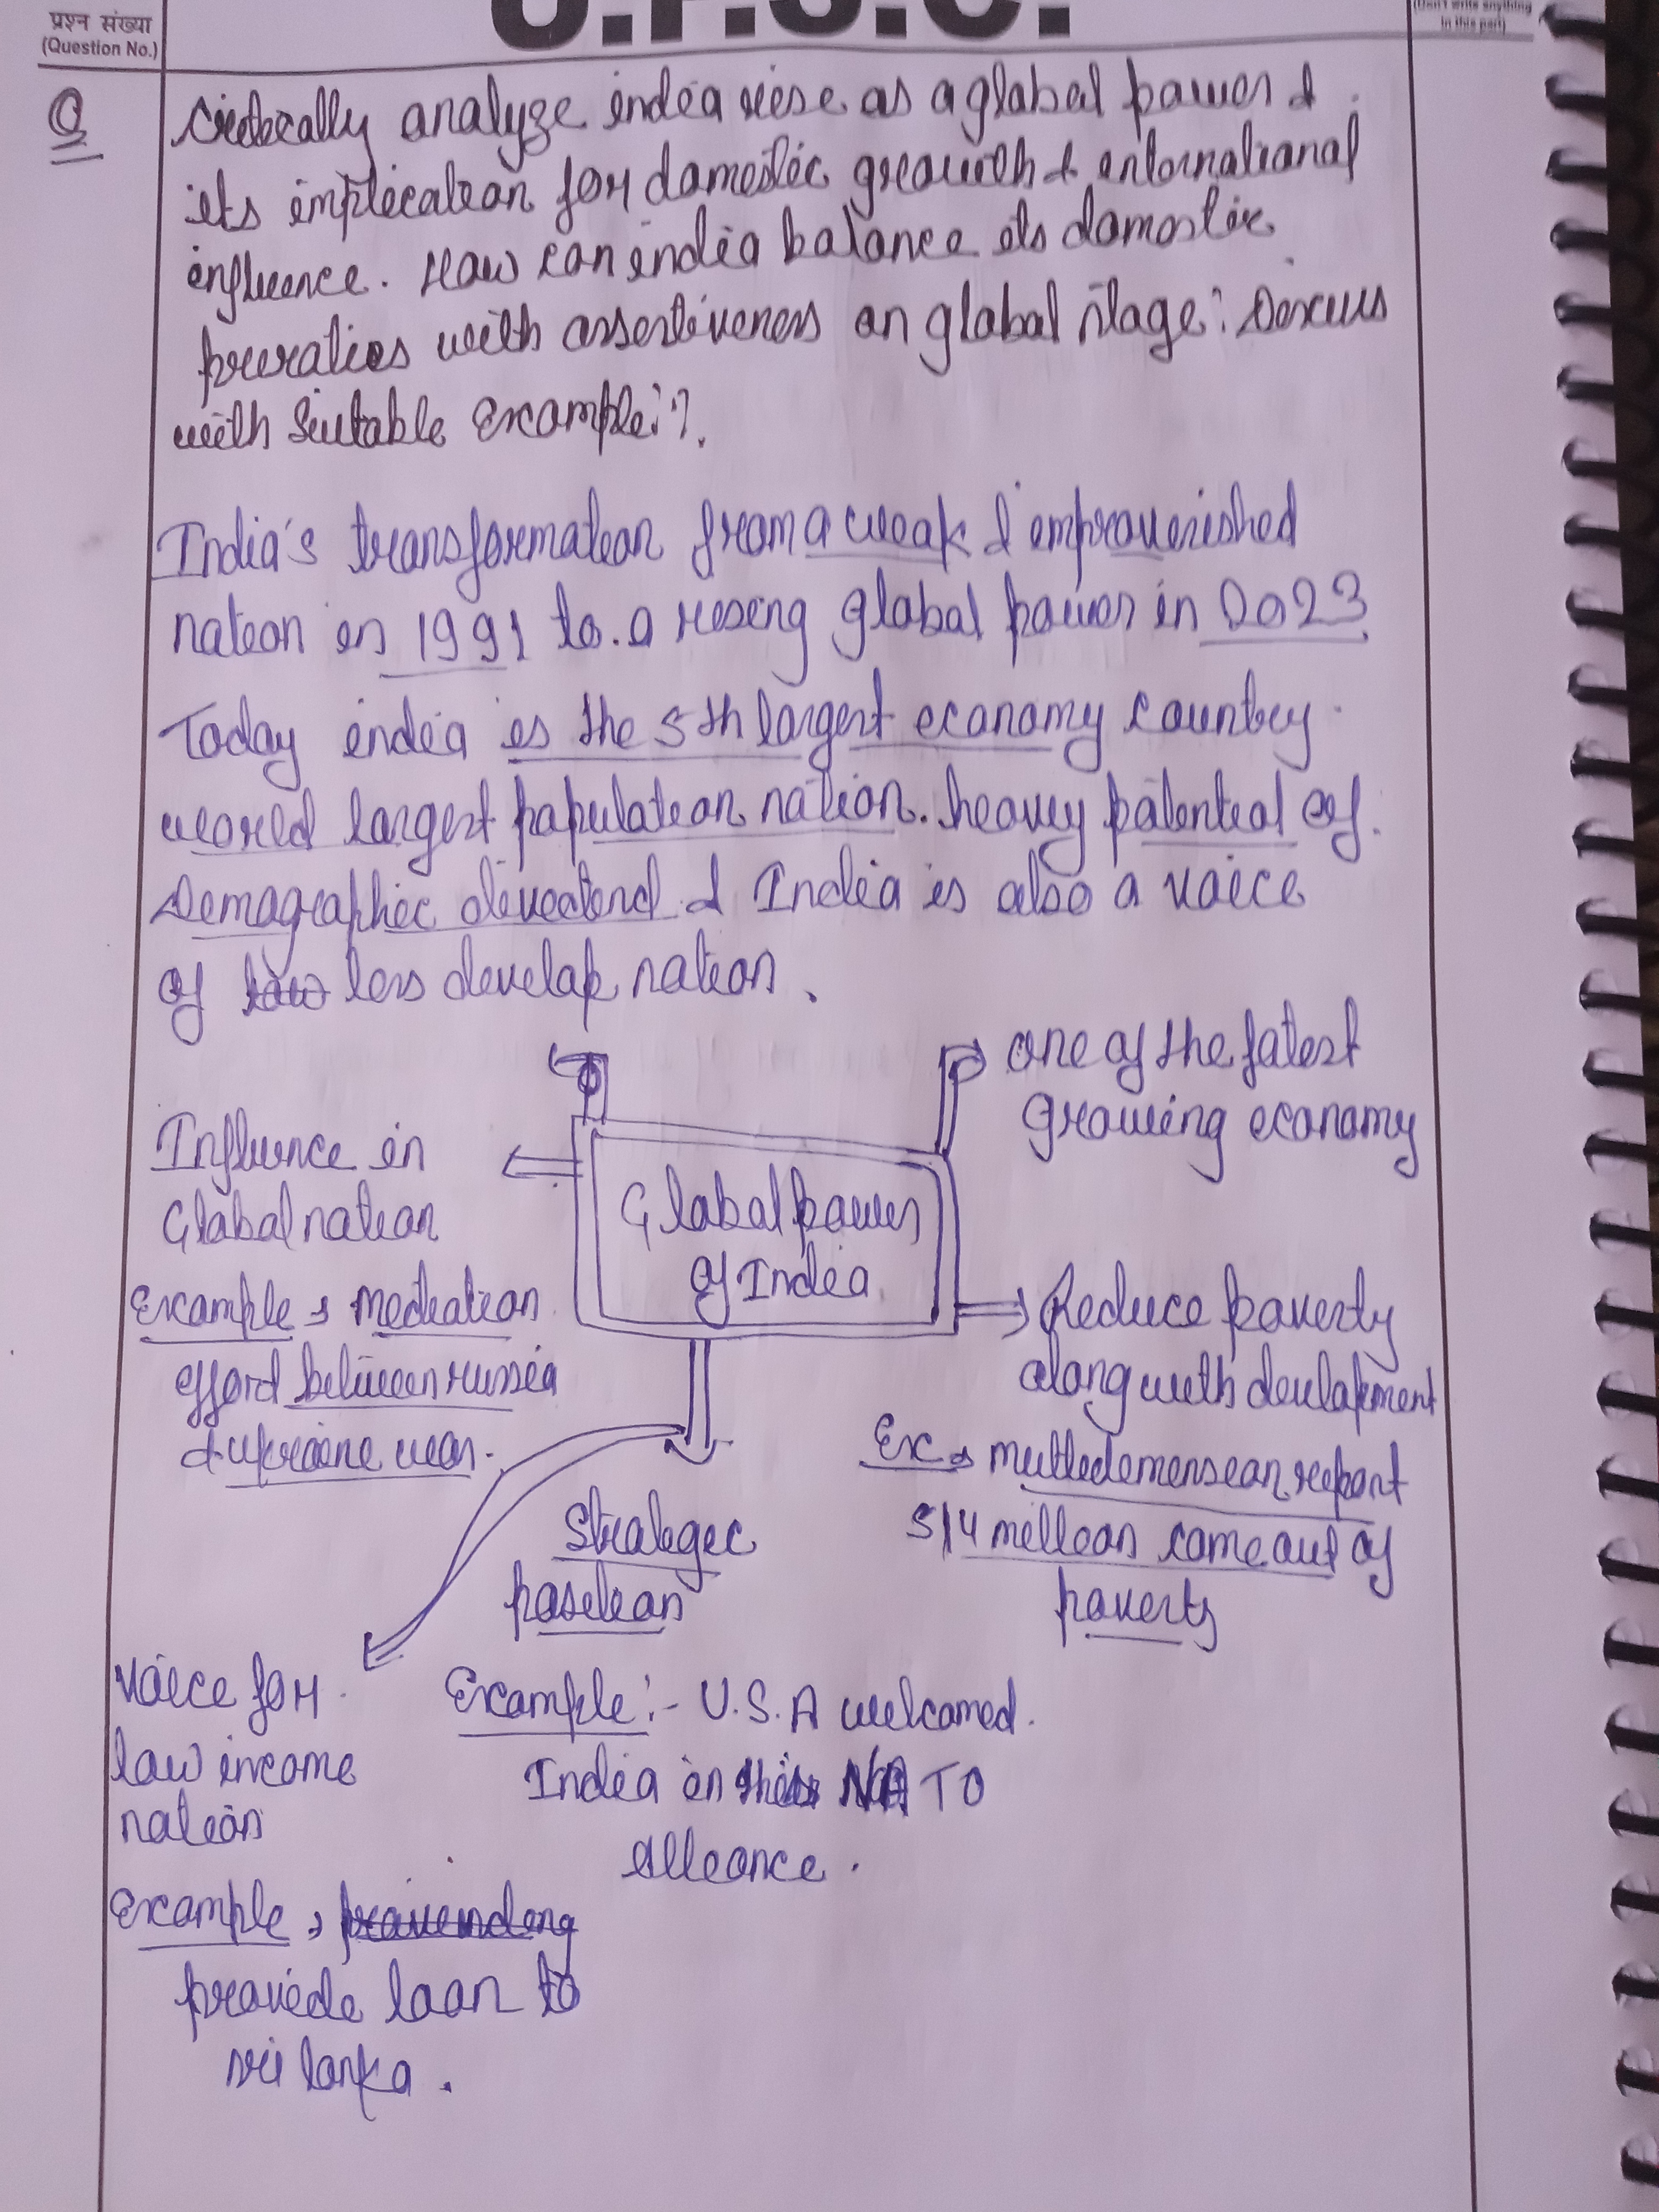 प्रश्न संख्या
(Question No.)
U.P.S.C.
(Don't write anything
in this part)
Q
Critically analyze india rise as a global power &
its implication for domestic growth & international
influence. How can india balance its domestic
priorities with assertiveness on global stage? Discuss
with Suitable Example?
India's transformation from a weak & improverished
nation in 1991 to a rising global power in 2023
Today india is the 5th largest economy country.
world largest population nation. heavy potential of
Demographic dividend & India is also a voice
of low less develop nation.
one of the fatest
growing economy
Influence in
Global nation
Example → mediation
efford between russia
& ukraine war.
Global power
of India
Reduce poverty
along with devlopment
Ex → multidimension report
514 million come out of
poverty
Strategic
position
Example :- U.S.A welcomed
India in their NATO
alleance.
Voice for
low income
nation
Example → providing
provide loan to
sri lanka.